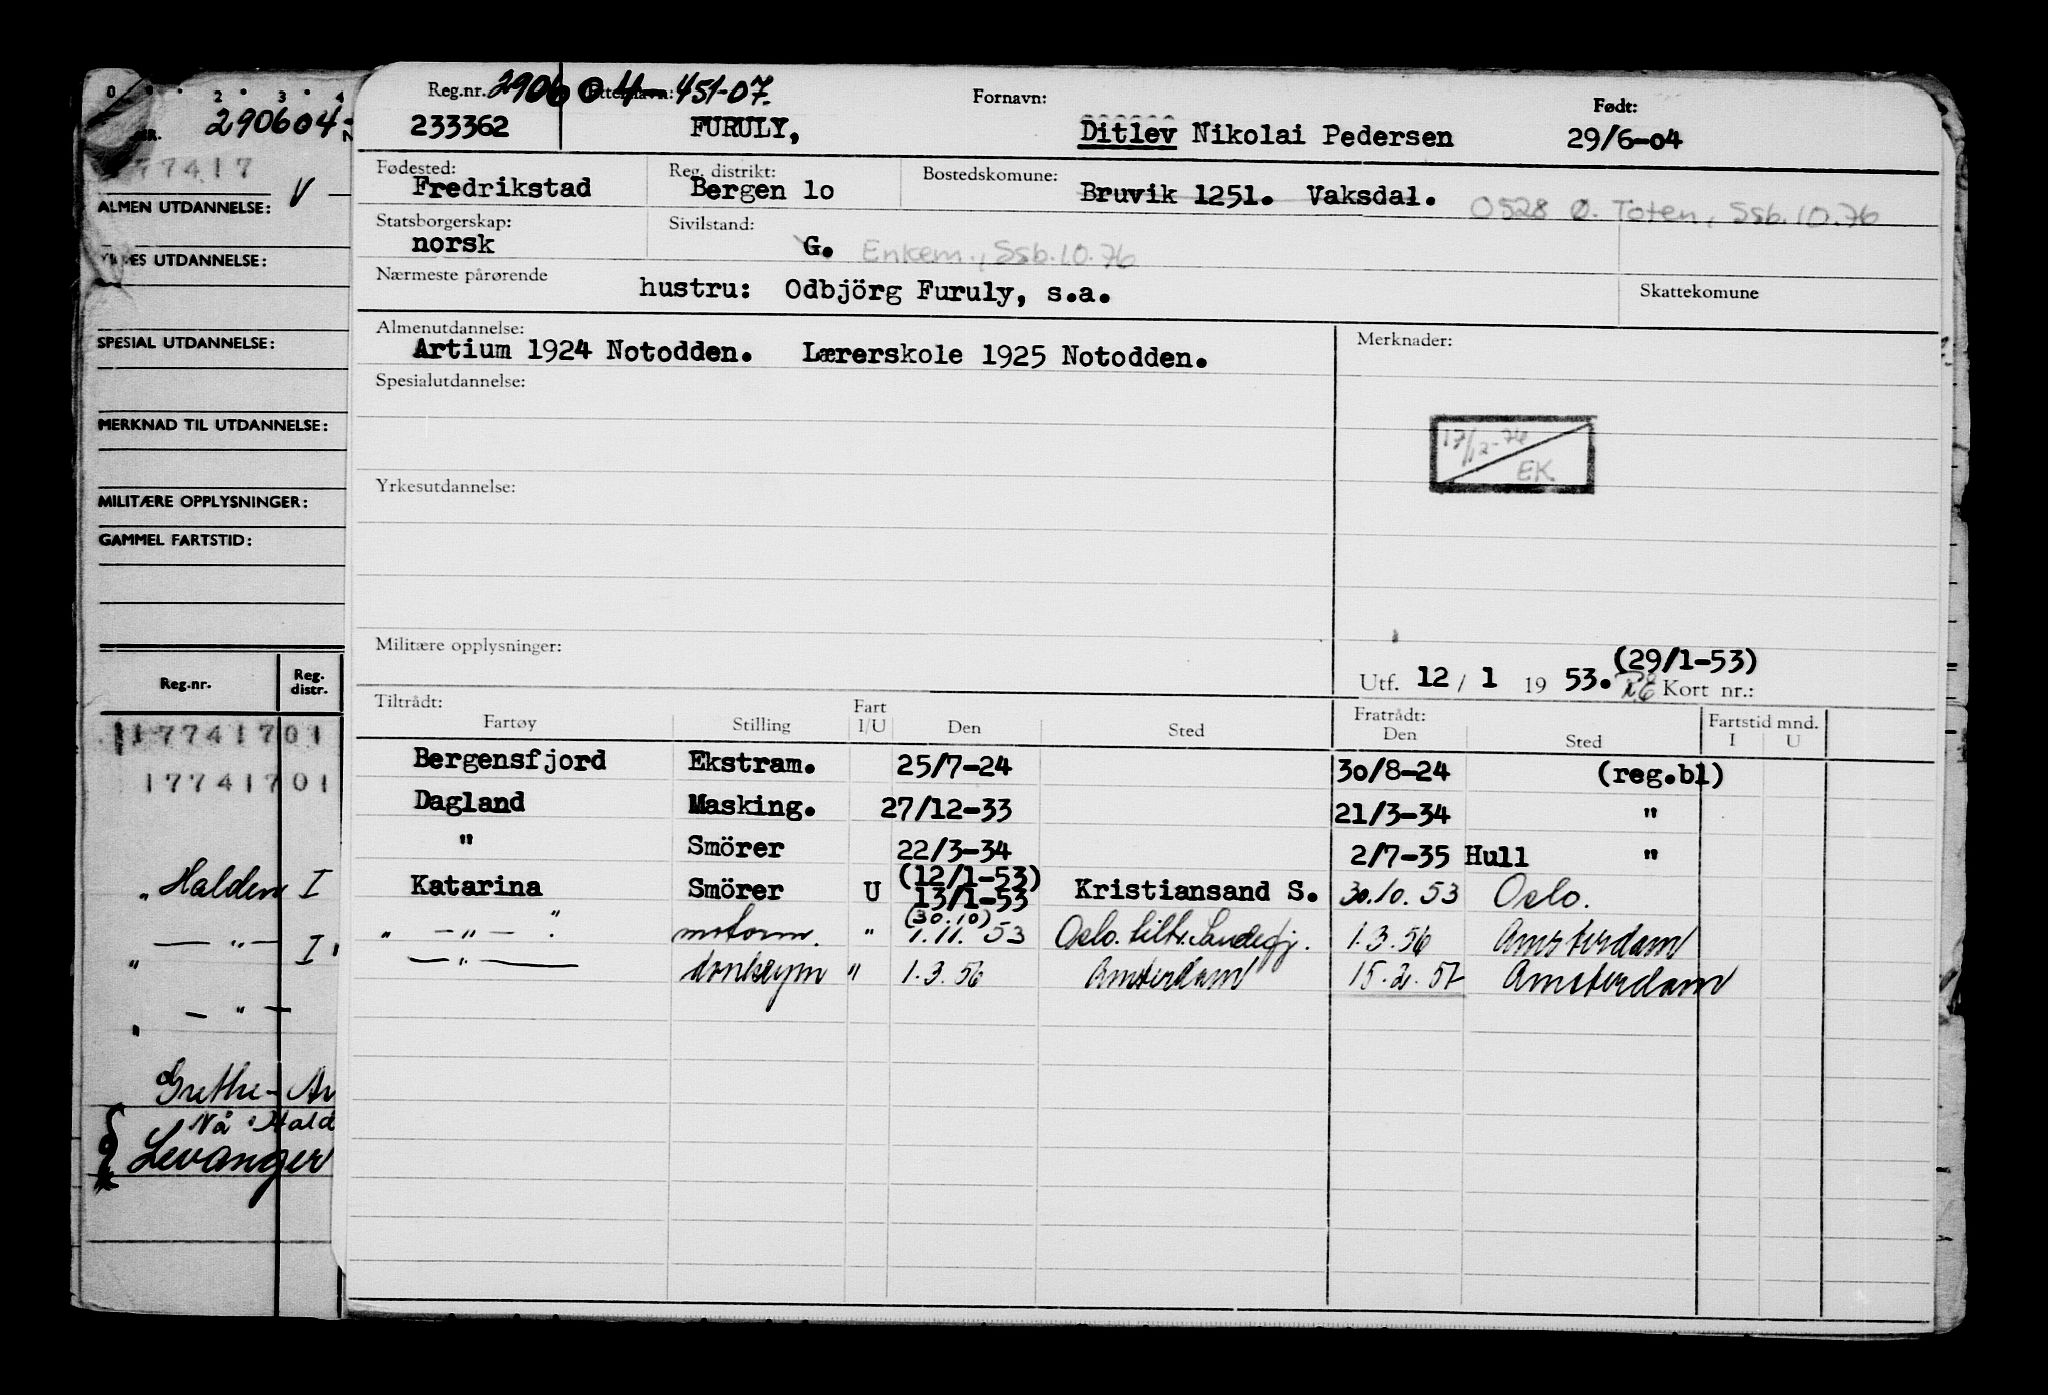 0 . . 2 . 3 . 4
NR. 290604-
77417
V -
ALMEN UTDANNELSE:
YRKES UTDANNELSE:
SPESIAL UTDANNELSE:
MERKNAD TIL UTDANNELSE:
MILITÆRE OPPLYSNINGER:
GAMMEL FARTSTID:
Reg.nr. Reg. distr.
17741701
17741701
" Halden I
" — " — I "
" — " —
Grethe - An
Nå Hald
Levanger
Reg.nr. 290604-45107. Etternavn: Fornavn: Født:
233362 FURULY, Ditlev Nikolai Pedersen 29/6-04
Fødested: Reg. distrikt: Bostedskomune:
Fredrikstad Bergen 1o Bruvik 1251. Vaksdal. 0528 Ø. Toten, Ssb. 10.76
Statsborgerskap: Sivilstand:
norsk G. Enkem., Ssb. 10.76
Nærmeste pårørende hustru: Odbjörg Furuly, s.a. Skattekomune
Almenutdannelse: Merknader:
Artium 1924 Notodden. Lærerskole 1925 Notodden.
Spesialutdannelse:
17/12-74
EK
Yrkesutdannelse:
Militære opplysninger:
(29/1-53)
Utf. 12 / 1 19 53. Kort nr.:
Tiltrådt: Fart Fratrådt: Fartstid mnd.
Fartøy Stilling I/U Den Sted Den Sted I U
Bergensfjord Ekstram. 25/7-24 30/8-24 (reg.bl)
Dagland Masking. 27/12-33 21/3-34 "
" Smörer 22/3-34 2/7-35 Hull "
(12/1-53)
Katarina Smörer U 13/1-53 Kristiansand S. 30.10.53 Oslo.
(30.10)
" — " — " motorm. " 1.11.53 Oslo. tiltr. Sandefj. 1.3.56 Amsterdam
— " — donkeym " 1.3.56 Amsterdam 15.2.57 Amsterdam